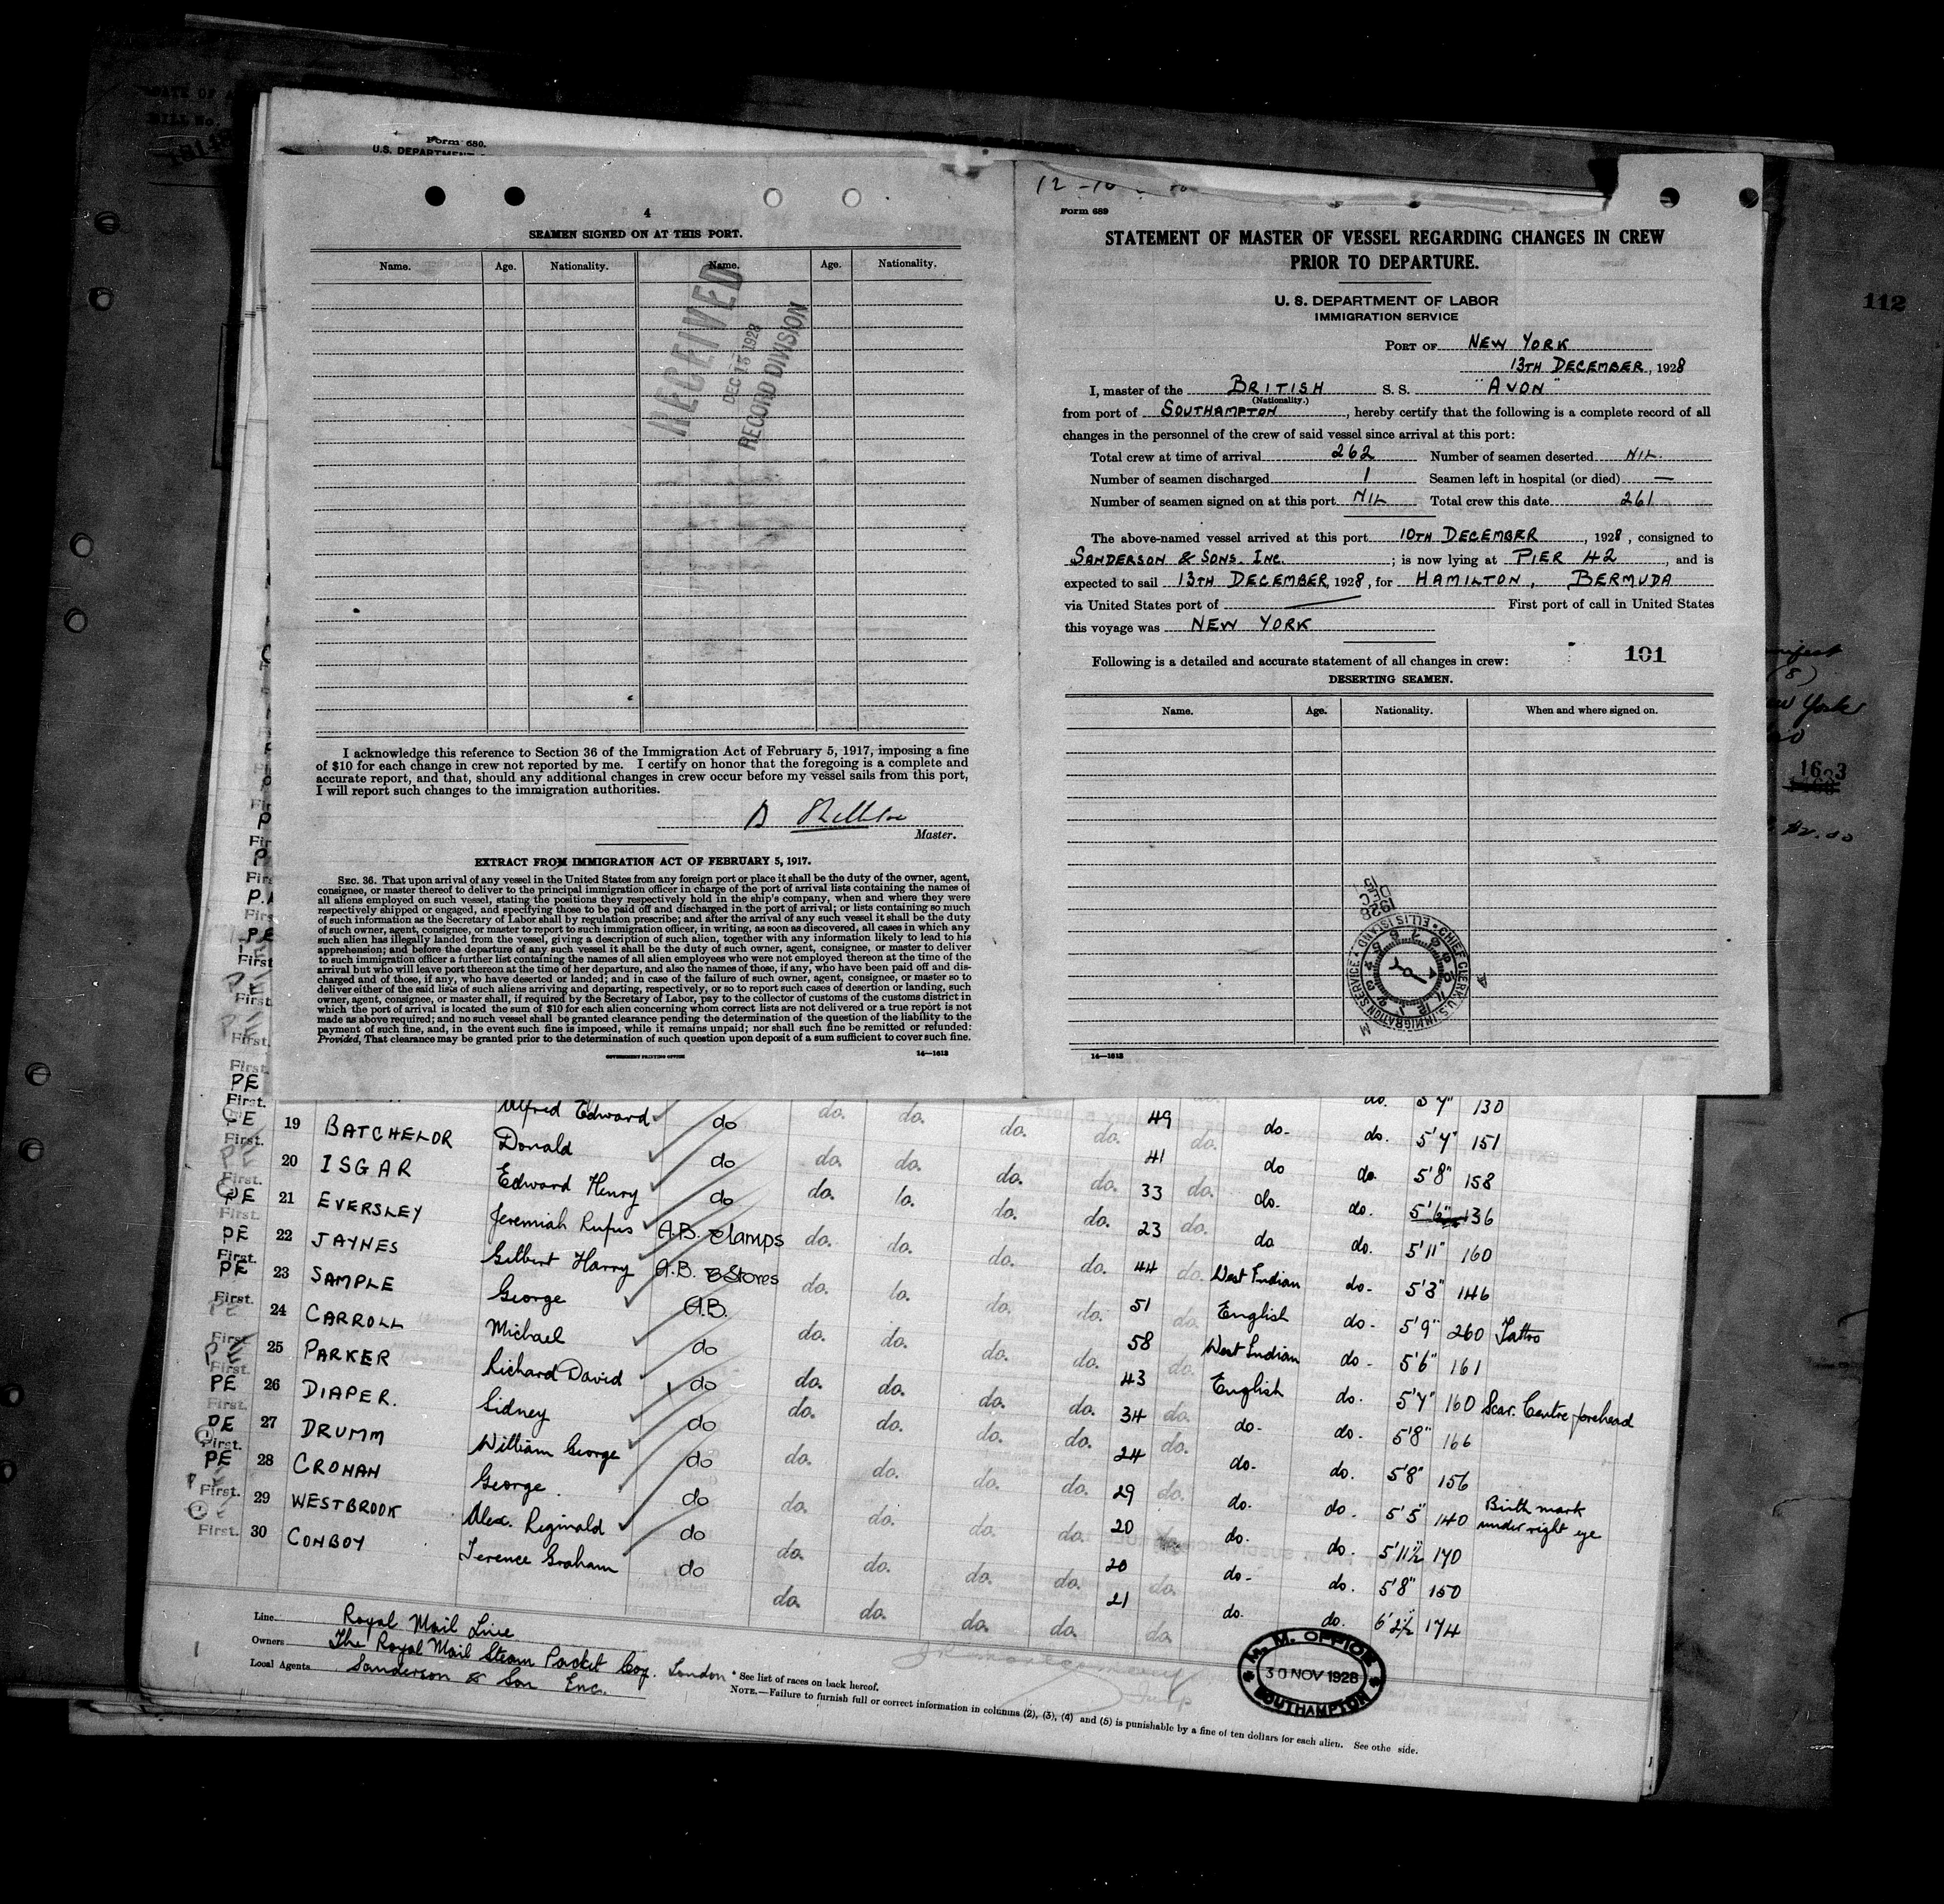 Form 680.
U.S. DEPARTMENT
112
4
SEAMEN SIGNED ON AT THIS PORT.
Name. Age. Nationality. Name. Age. Nationality.
RECEIVED
DEC 15 1928
RECORD DIVISION
I acknowledge this reference to Section 36 of the Immigration Act of February 5, 1917, imposing a fine
of $10 for each change in crew not reported by me. I certify on honor that the foregoing is a complete and
accurate report, and that, should any additional changes in crew occur before my vessel sails from this port,
I will report such changes to the immigration authorities.
Master.
EXTRACT FROM IMMIGRATION ACT OF FEBRUARY 5, 1917.
SEC. 36. That upon arrival of any vessel in the United States from any foreign port or place it shall be the duty of the owner, agent,
consignee, or master thereof to deliver to the principal immigration officer in charge of the port of arrival lists containing the names of
all aliens employed on such vessel, stating the positions they respectively hold in the ship's company, when and where they were
respectively shipped or engaged, and specifying those to be paid off and discharged in the port of arrival; or lists containing so much
of such information as the Secretary of Labor shall by regulation prescribe; and after the arrival of any such vessel it shall be the duty
of such owner, agent, consignee, or master to report to such immigration officer, in writing, as soon as discovered, all cases in which any
such alien has illegally landed from the vessel, giving a description of such alien, together with any information likely to lead to his
apprehension; and before the departure of any such vessel it shall be the duty of such owner, agent, consignee, or master to deliver
to such immigration officer a further list containing the names of all alien employees who were not employed thereon at the time of the
arrival but who will leave port thereon at the time of her departure, and also the names of those, if any, who have been paid off and dis-
charged and of those, if any, who have deserted or landed; and in case of the failure of such owner, agent, consignee, or master so to
deliver either of the said lists of such aliens arriving and departing, respectively, or so to report such cases of desertion or landing, such
owner, agent, consignee, or master shall, if required by the Secretary of Labor, pay to the collector of customs of the customs district in
which the port of arrival is located the sum of $10 for each alien concerning whom correct lists are not delivered or a true report is not
made as above required; and no such vessel shall be granted clearance pending the determination of the question of the liability to the
payment of such fine, and, in the event such fine is imposed, while it remains unpaid; nor shall such fine be remitted or refunded:
Provided, That clearance may be granted prior to the determination of such question upon deposit of a sum sufficient to cover such fine.
GOVERNMENT PRINTING OFFICE 14—1613
Form 689
STATEMENT OF MASTER OF VESSEL REGARDING CHANGES IN CREW
PRIOR TO DEPARTURE.
U. S. DEPARTMENT OF LABOR
IMMIGRATION SERVICE
PORT OF NEW YORK
13TH DECEMBER, 1928
I, master of the BRITISH S. S. "AVON"
(Nationality.)
from port of SOUTHAMPTON, hereby certify that the following is a complete record of all
changes in the personnel of the crew of said vessel since arrival at this port:
Total crew at time of arrival 262 Number of seamen deserted NIL.
Number of seamen discharged 1 Seamen left in hospital (or died) —
Number of seamen signed on at this port NIL Total crew this date 261
The above-named vessel arrived at this port 10TH DECEMBER, 1928, consigned to
SANDERSON & SONS. INC.; is now lying at PIER 42, and is
expected to sail 13TH DECEMBER, 1928, for HAMILTON, BERMUDA
via United States port of — First port of call in United States
this voyage was NEW YORK
101
Following is a detailed and accurate statement of all changes in crew:
DESERTING SEAMEN.
Name. Age. Nationality. When and where signed on.
1928 DEC 15
CHIEF CLERK, U.S. IMMIGRATION SERVICE ELLIS ISLAND
14—1613
1623
$2.00
Alfred Edward do do. do. do. do. 49 do. do. do. 5'7" 130
19 BATCHELOR Donald do do. do. do. do. 41 do. do do. 5'7" 151
20 ISGAR Edward Henry do do. do. do. do. 33 do. do. do. 5'8" 158
21 EVERSLEY Jeremiah Rufus A.B. Lamps do. do. do. do. 23 do. do do. 5'6" 136
22 JAYNES Gilbert Harry A.B. Stores do. do. do. do. 44 do. West Indian do. 5'11" 160
23 SAMPLE George A.B. do. do. do. do. 51 do. English do. 5'3" 146
24 CARROLL Michael do do. do. do. do. 58 West Indian do. 5'9" 260 Tattoo
25 PARKER Richard David do do. do. do. do. 43 English do. 5'6" 161
26 DIAPER. Sidney do do. do. do. do. 34 do. do. do. 5'7" 160 Scar. Centre forehead
27 DRUMM William George do do. do. do. do. 24 do. do. do. 5'8" 166
28 CRONAN George do do. do. do. do. 29 do. do. do. 5'8" 156
29 WESTBROOK Alex. Reginald do do. do. do. do. 20 do. do. 5'5" 140 Birth mark under right eye
30 CONBOY Terence Graham do do. do. do. do. 20 do. do. do. 5'11½" 170
5'8" 150
21 do. do. 6'2½" 174
Line Royal Mail Line
Owners The Royal Mail Steam Packet Coy. London
Local Agents Sanderson & Son Inc.
* See list of races on back hereof.
NOTE.—Failure to furnish full or correct information in columns (2), (3), (4) and (5) is punishable by a fine of ten dollars for each alien. See othe side.
M. M. OFFICE
30 NOV 1928
SOUTHAMPTON